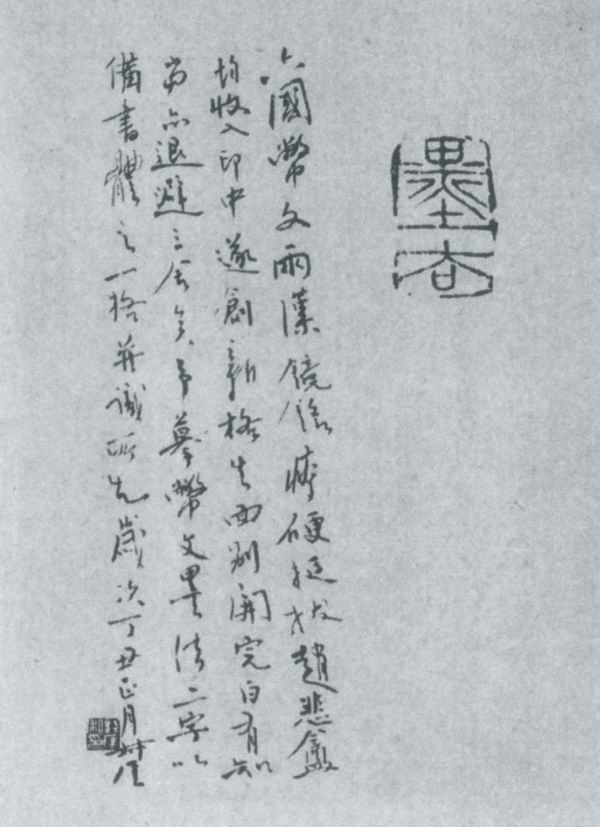 墨法
六國幣文兩漢鏡銘瘦硬挺拔趙悲盦
均收入印中遂創新格生面別開完白有知
當亦退避三舍矣予摹幣文墨法二字以
備書體之一格并識所歲次丁丑正月